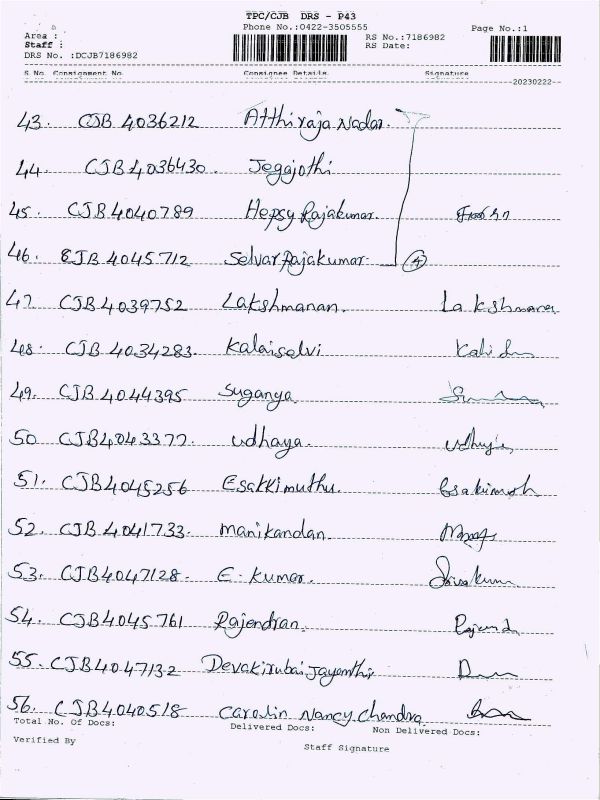 TPC/CJB DRS - P43
Phone No.:0422-3505555
Area :
Staff :
DRS No. :DCJB7186982
RS No.:7186982
RS Date:
Page No.:1
S.No. Consignment No. Consignee Details. Signature
20230222
43. CJB 4036212 Atthiraja Nadar.
44. CJB 4036430. Jegajothi
45. CJB 4040789 Hepsy Rajakumar.
46. CJB 4045712 SelvarRajakumar 4
47. CJB 4039752 Lakshmanan. Lakshmanan
48. CJB 4034283. Kalaiselvi
49. CJB 4044395 Suganya
50. CJB4043377. Udhaya.
51. CJB4045256 Esakkimuthu. Esakimuth
52. CJB 4041733. Manikandan
53. CJB4047128. E. Kumar. Sivakum
54. CJB4045761 Rajendran.
55. CJB4047132 Devakirubai Jayanthi
56. CJB4040518 Carolin Nancy Chandra
Total No. Of Docs: Delivered Docs: Non Delivered Docs:
Verified By
Staff Signature